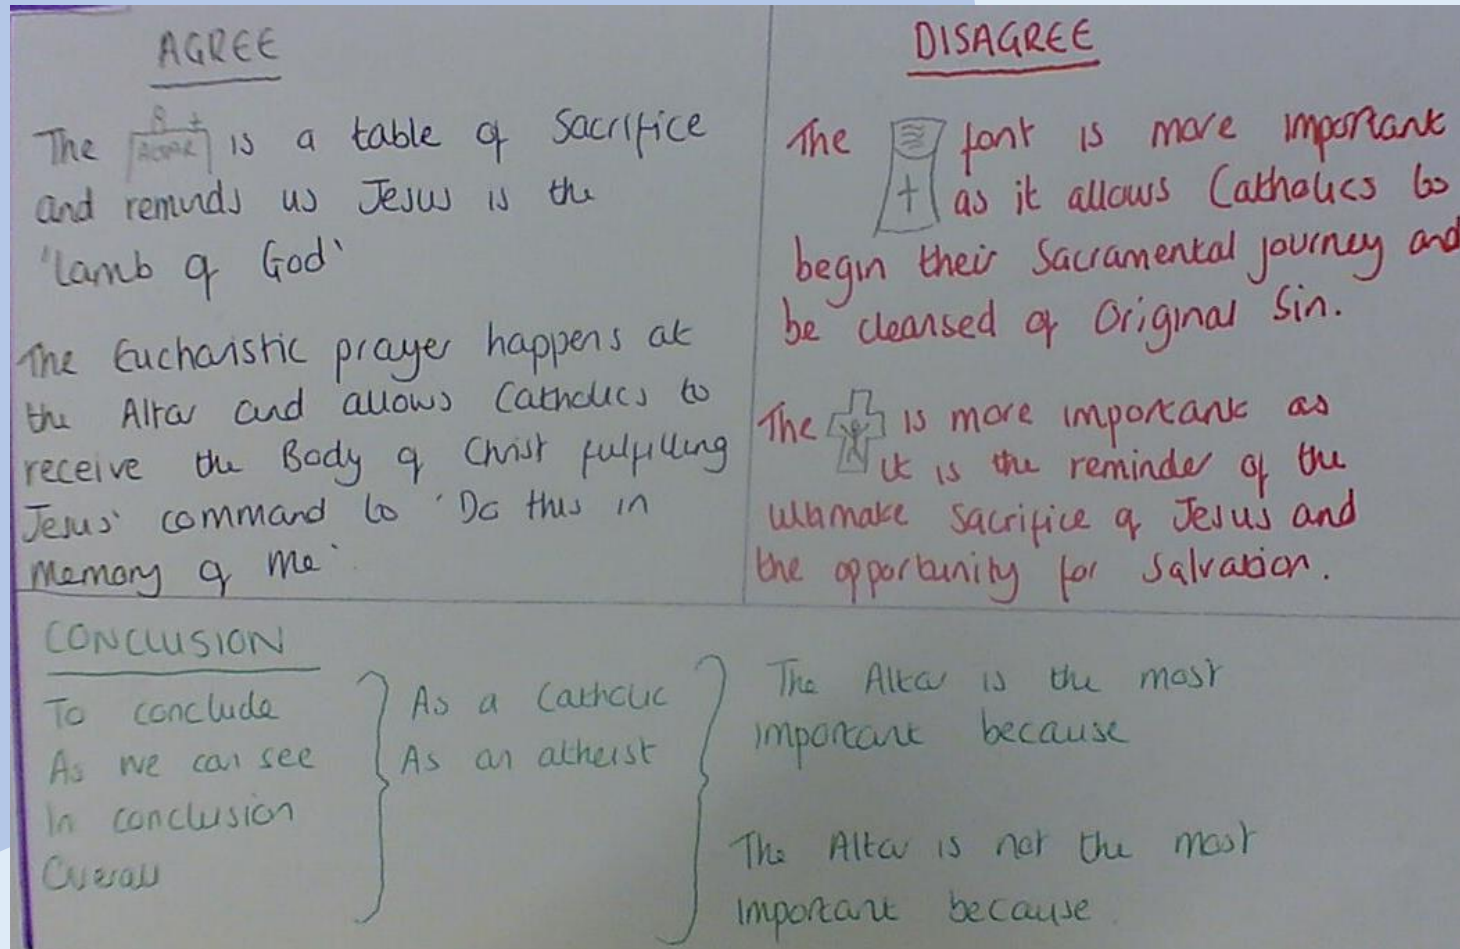 AGREE
The ALTAR is a table of Sacrifice
and reminds us Jesus is the
'Lamb of God'
The Eucharistic prayer happens at
the Altar and allows Catholics to
receive the Body of Christ fulfilling
Jesus' command to 'Do this in
Memory of Me'.
DISAGREE
The font is more important
as it allows Catholics to
begin their Sacramental journey and
be cleansed of Original Sin.
The is more important as
it is the reminder of the
ultimate Sacrifice of Jesus and
the opportunity for Salvation.
CONCLUSION
To conclude
As we can see
In conclusion
Overall
As a Catholic
As an atheist
The Altar is the most
important because
The Altar is not the most
important because.